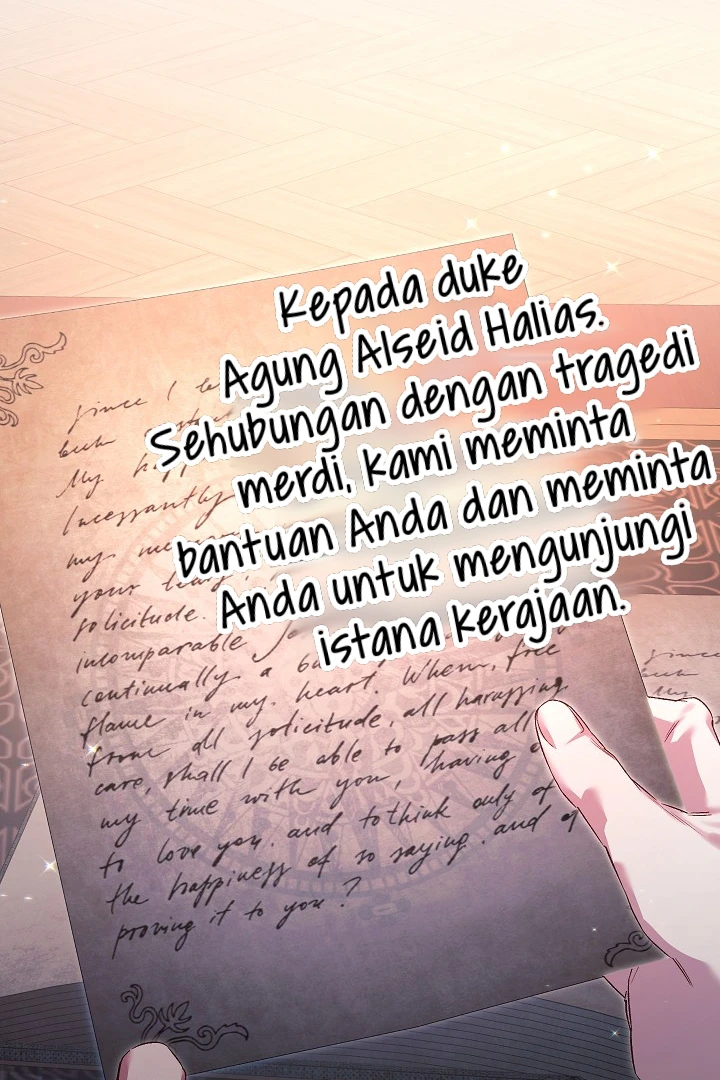 Kepada duke
Agung Alseid Halias.
Sehubungan dengan tragedi
merdi, kami meminta
bantuan Anda dan meminta
Anda untuk mengunjungi
istana kerajaan.
since I
My
Incessantly
my
your
solicitude.
incomparable
continually a
flame in my. heart. When, free
from all solicitude, all harassing
care, shall I be able to pass all
my time with you, having
to love you. and to think only of
the happiness of so saying. and of
proving it to you?
since
buk
My